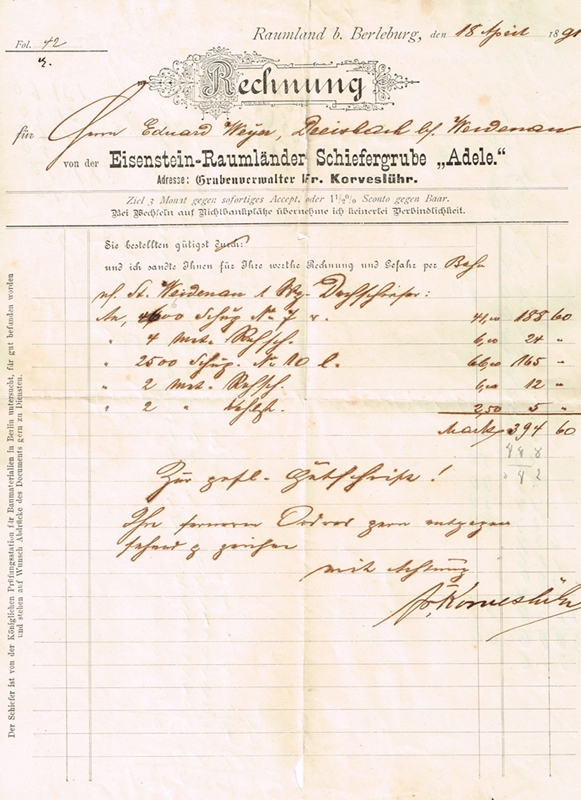 Raumland b. Berleburg, den 18 April 1891
Fol. 42
Rechnung
für Herrn Eduard Weyer, Dreisbach bf. Weidenau
von der Eisenstein-Raumländer Schiefergrube „Adele.“
Adresse: Grubenverwalter Fr. Korveslühr.
Ziel 3 Monat gegen sofortiges Accept, oder 1½% Sconto gegen Baar.
Bei Wechseln auf Nichtbankplätze übernehme ich keinerlei Verbindlichkeit.
Sie bestellten gütigst durch:
und ich sandte Ihnen für Ihre werthe Rechnung und Gefahr per Bahn
St. Weidenau 1 Wg. Dachschiefer:
An, 4600 Schup. No 7 r. 41,00 188 60
" 4 mtr. 6,00 24 "
" 2500 Schup. No 10 l. 66,00 165 "
" 2 mtr. 6,00 12 "
" 2 " 2,50 5 "
Mark 394 60
Zur gefl. Gutschrift!
Ihre ferneren Ordres gern entgegen
sehend zeichne
mit Achtung
Fr. Korveslühr
Der Schiefer ist von der Königlichen Prüfungsstation für Baumaterialien in Berlin untersucht, für gut befunden worden
und stehen auf Wunsch Abdrücke des Documents gern zu Diensten.